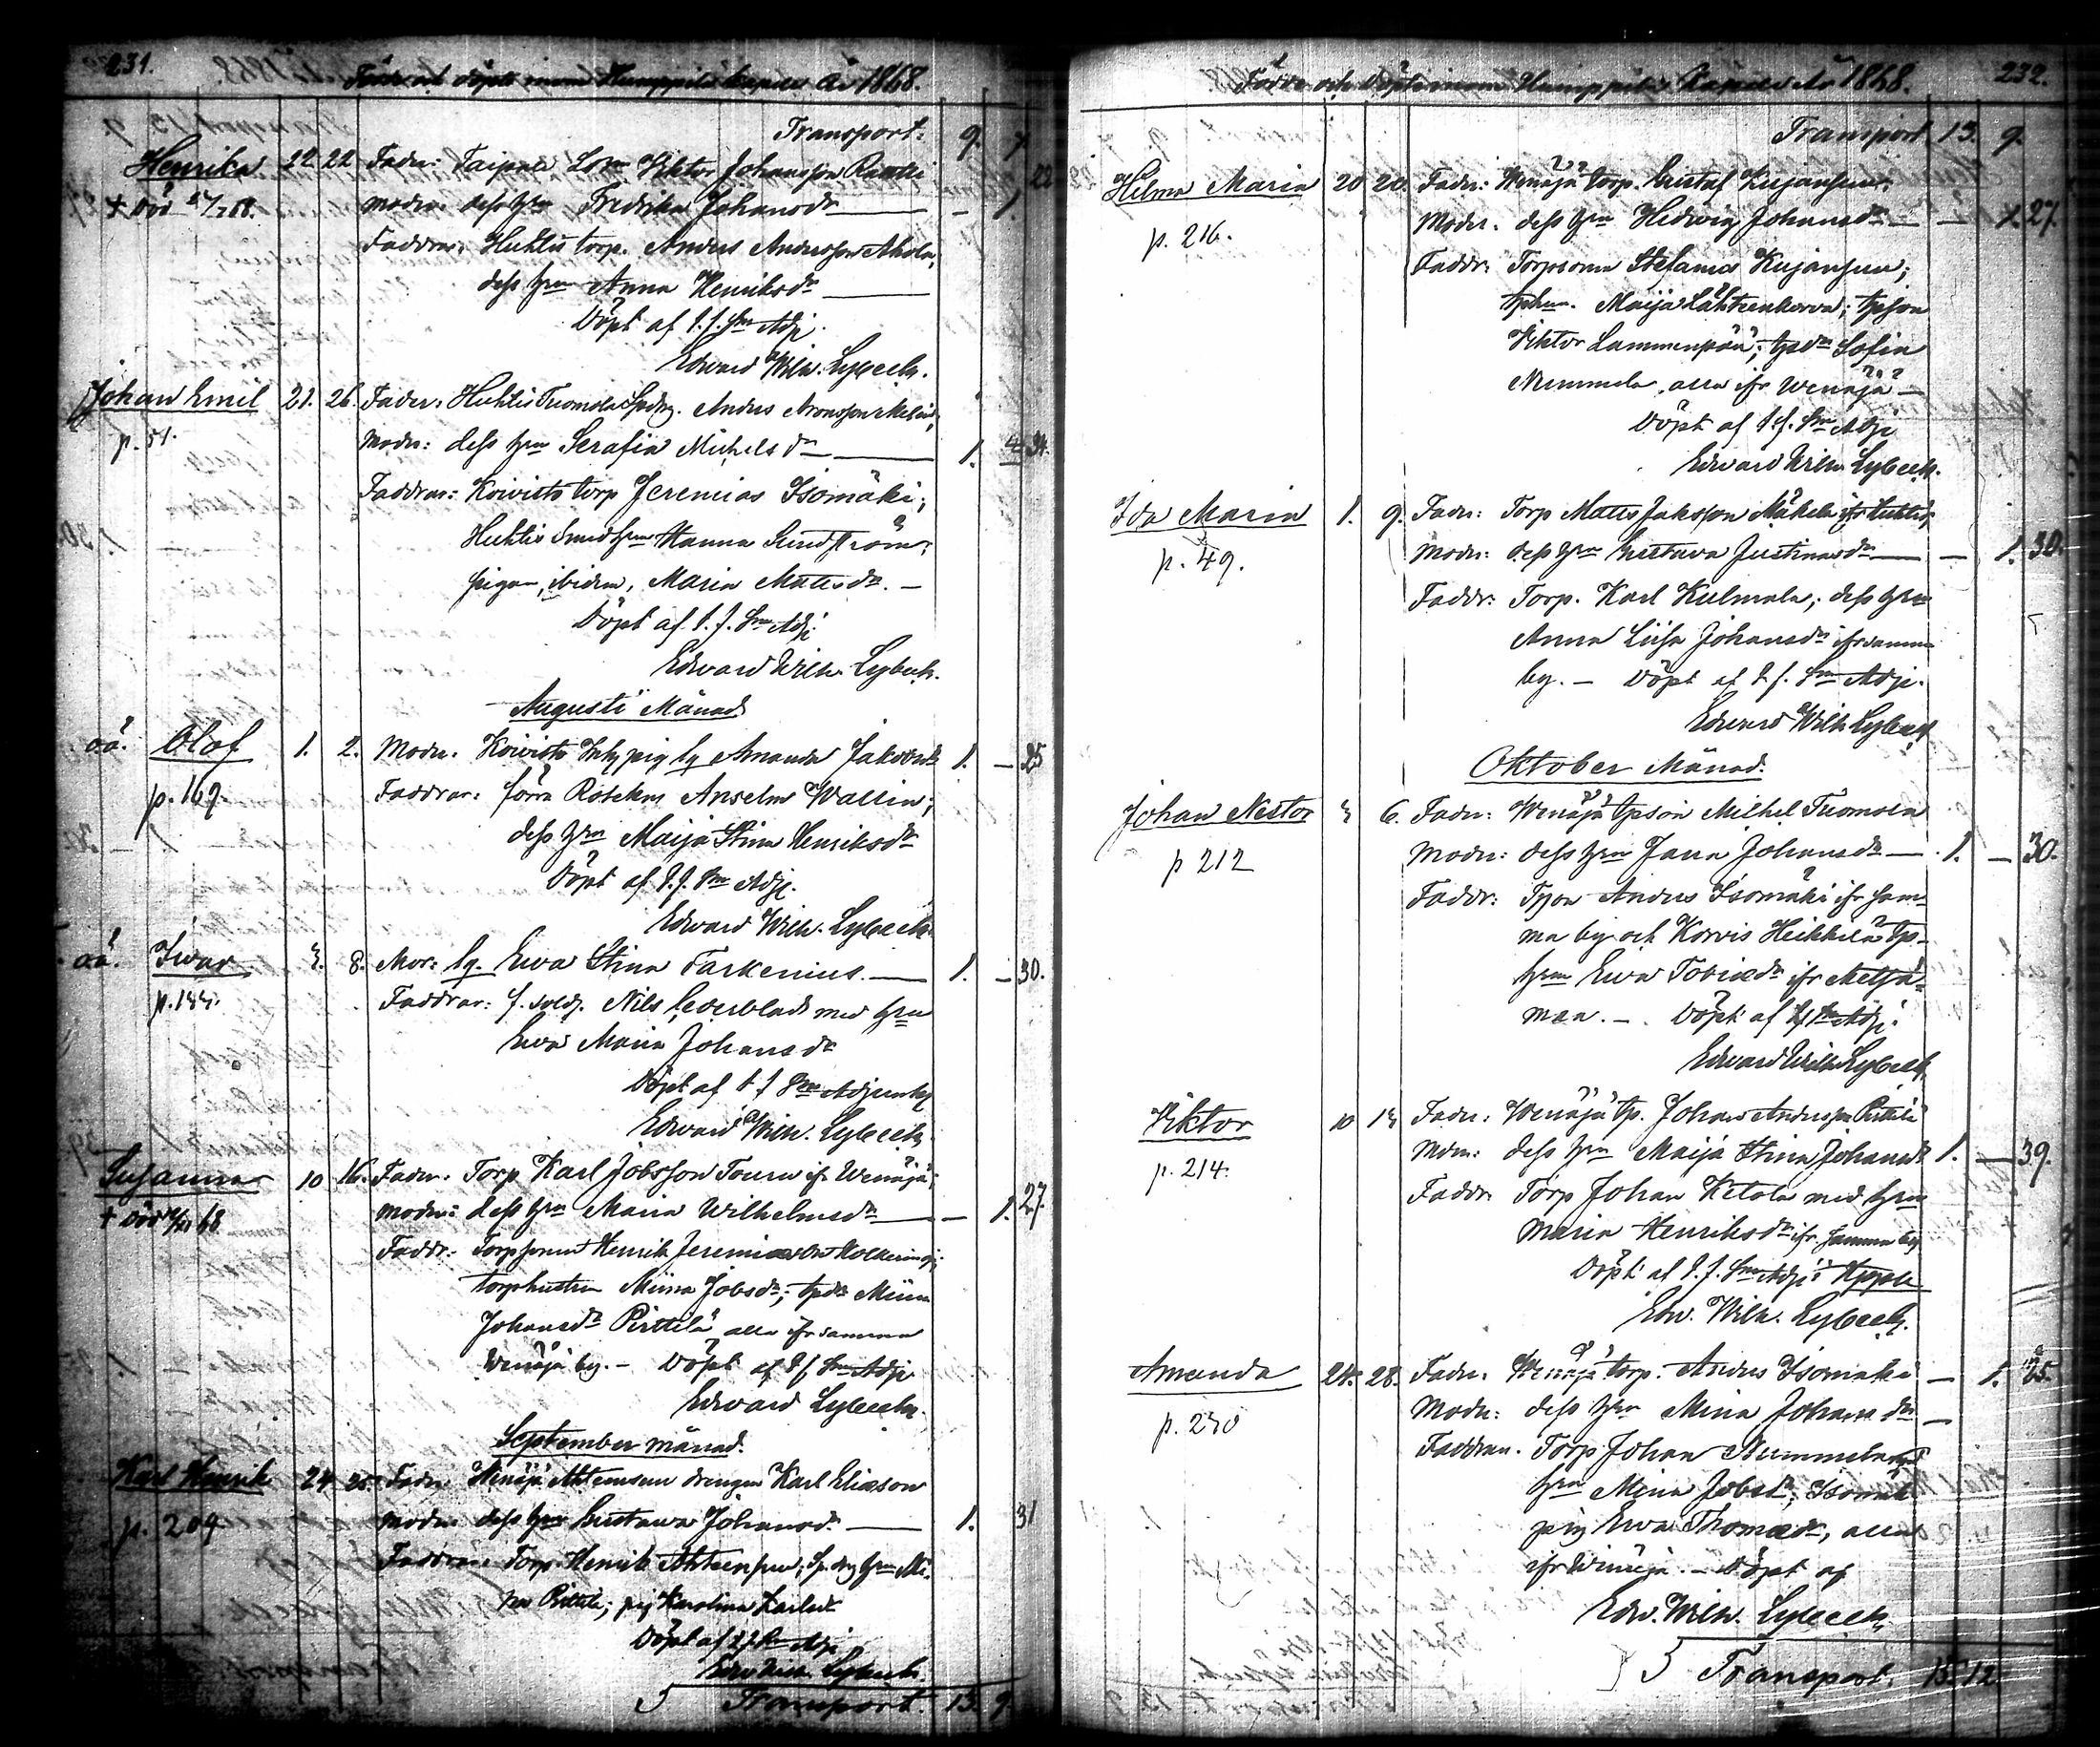 231.
Födde och döpte inom Humppila kapell År 1868.
Transport: 9. 7.
Henrika 22 22 Fader: Taipale Viktor Johansson Rautti 22
+ Död /68. Moder: dess hru Fredrika Johansdr — - 1.
Faddrar: Huhtis torp. Anders Andersson Ahola,
dess hru Anna Henriksdr —
Döpt af v. f. Sm Adj.
Edward Wilh. Lybeck.
Johan Emil 21. 26. Fader: Huhtis Tuomola Anders Aronsson
p. 51. Moder: dess hru Serafia Michelsdr — 1. 34.
Faddrar: Koivisto torp Jeremias Isomäki;
Huhtis Smed hru Hanna Sundström;
pigan, ibidem, Maria Matsdr. —
Döpt af v. f. Sm Adj.
Edward Wilh. Lybeck.
Augusti Månad
oä. Olof 1. 2. Moder. Koivisto pig Amanda Jakobsdr 1. — 25
p. 169. Faddrar: förra Anselm Wallin;
dess hru Maija Stina Henriksdr
Döpt af v. f. Sm Adj.
Edward Wilh. Lybeck.
oä. Iwar 3. 8. Mor: Ewa Stina Tarkenius. — 1. — 30.
p. 144. Faddrar: f. sold. Nils Cederblad med hru
Ewa Maria Johansdr
Döpt af v. f. Sm Adjunkt
Edward Wilh. Lybeck
Susanna 10 16. Fader. Torp Karl Jobsson Touru ifr Wenäjä;
+ Död 68 Moder: dess hru Maria Wilhelmsdr — — 1. 27.
Faddr: Henrik Jeremiasson
torphustru Miina Jobsdr; tpdr Miina
Johansdr Pirttilä alla ifr samma
Wenäjä by. — Döpt af v. f. Sm Adj
Edward Lybeck.
September månad.
Karl Henrik 24 25. Fader. Wenäjä Ahtensuu drengen Karl Eliasson
p. 209. Moder dess hru Gustava Johansdr — 1. 31
Faddrar: Torp. Henrik Ahtensuu; hru Mi-
na Pirttilä; pig Karolina Karlsdr
Döpt af v. f. Sm Adj
Edw Wilh. Lybeck.
5 Transport. 13. 9.
232.
Födde och Döpte inom Humppila Kapell År 1868.
Transport 13. 9.
Hilma Maria 20 20. Fader: Wenäjä torp. Gustaf Kujansuu;
p. 216. Moder. dess hru Hedwig Johansdr — — 1. 27.
Faddr: Torpsonen Stefanus Kujansuu;
tphru. Maija Lähteenkorva; tpson
Viktor Lammenpää; tpdr Sofia
Nummela, alla ifr Wenäjä —
Döpt af v. f. Sm Adj
Edward Wilh Lybeck.
Ida Maria 1. 9. Fader: Torp Matts Jaksson Mäkelä ifr Huhtis;
p. 49. Moder: dess hru Gustava Justinasdr — — 1. 30.
Faddr: Torp. Karl Kulmala; dess hru
Anna Liisa Johansdr ifr samma
by. — Döpt af v. f. Sm Adj.
Edward Wilh Lybeck
Oktober Månad.
Johan Nestor 3 6. Fader: Wenäjä tpson Milhel Tuomola
p 212 Moder: dess hru Jana Johansdr — 1. — 30.
Faddr: Tpson Anders Isomäki ifr sam-
ma by och Korvis Heikkilä tp-
hru Ewa Tobiasdr ifr Metsä-
maa. — Döpt af v f Sm Adj.
Edward Wilh Lybeck
Viktor 10 13 Fader: Wenäjä tp. Johan Andersson Pirttilä
p. 214. Mdm: dess hru Maija Stina Johansdr 1. — 39.
Faddr Torp Johan Ketola med hru
Maria Henriksdr ifr. samma by
Döpt af v. f. Sm Adj i
Edw. Wilh. Lybeck.
Amanda 24. 28. Fader. Wenäjä torp. Anders Isomäki — 1. 25.
p. 230 Moder: dess hru Miina Johansdr —
Faddrar. Torp Johan Nummela med
hru Miina Jobsdr; Isomäki
pig Ewa Thomasdr, alla
ifr Wenäjä. — Döpt af
Edw. Wilh. Lybeck
5 Transport. 15. 12